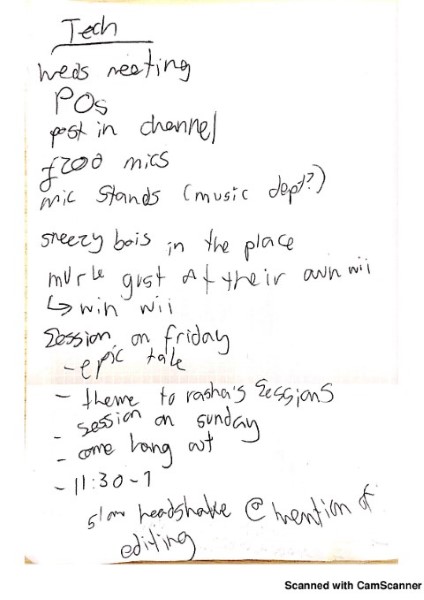 Tech
weds meeting
POs
post in channel
£200 mics
mic stands (music dept?)
sneezy bois in the place
gust at their own wii
↳ win wii
Session on friday
- epic tale
- theme to rasha's sessions
- session on sunday
- come hang out
- 11:30-1
slow headshake @ mention of
editing
Scanned with CamScanner